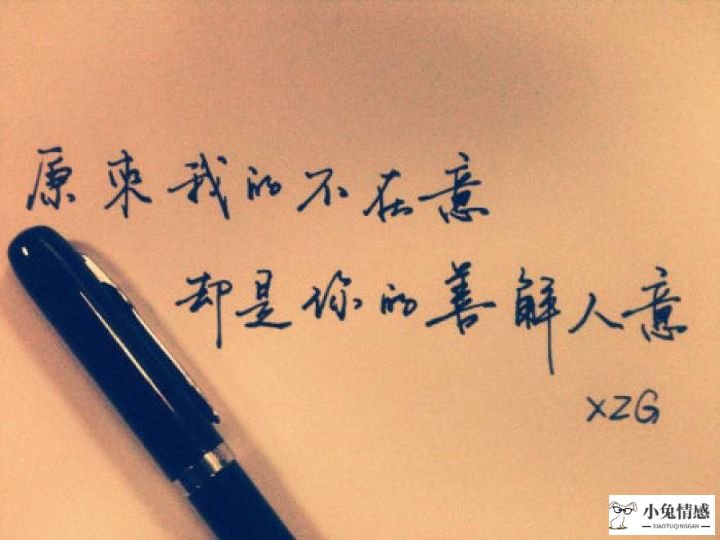 原來我的不在意
却是你的善解人意
XZG
小兔情感
XIAOTUQINGGAN